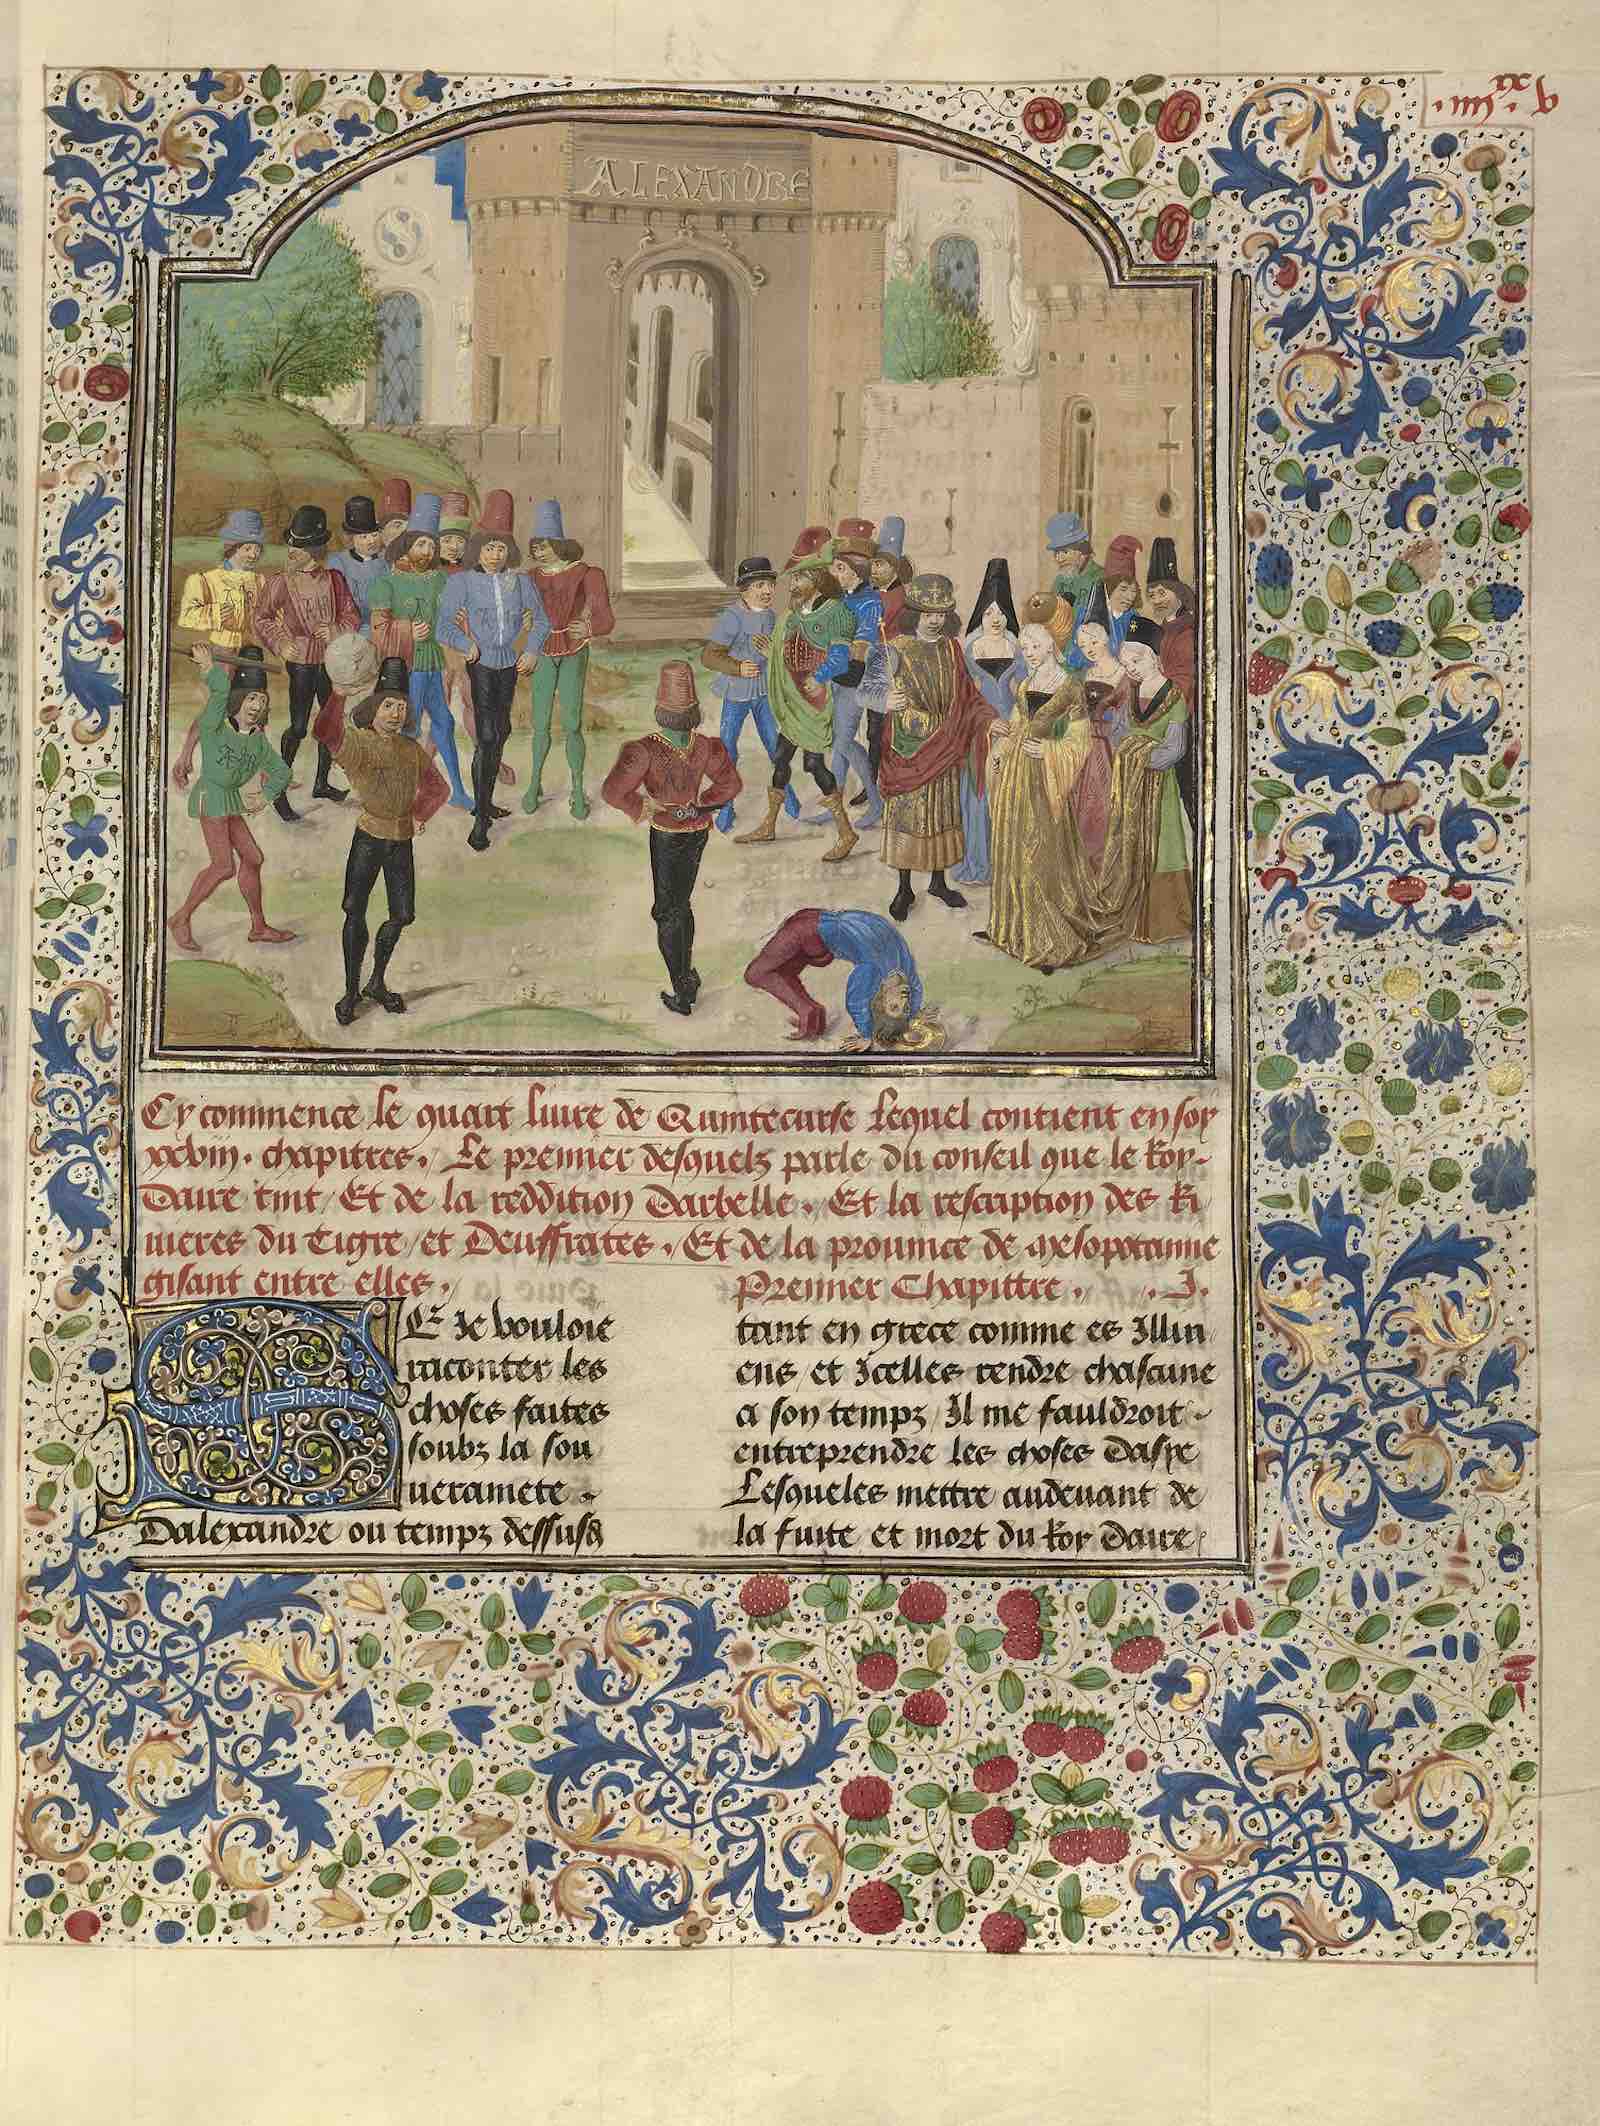 .iiii.xx v
ALEXANDRE
Cy commence le quart liure de Quintecurse lequel contient en soy
xxviii. chapitres. Le premier desquelz parle du conseil que le Roy
Daire tint/ Et de la reddition Darbelle. Et la rescription des Ri
uieres du Tigre/ et Deuffrates. Et de la prouince de mesopotamie
gisant entre elles. Premier Chapittre. .I.
SE Ie vouloie
raconter les
choses faites
soubz la sou
uerainete
Dalexandre ou temps dessusd
tant en grece comme es Illiri
ens/ et Icelles rendre chascune
a son temps/ Il me fauldroit
entreprendre les choses Dasye
Lesqueles mettre audeuant de
la fuite et mort du Roy Daire/